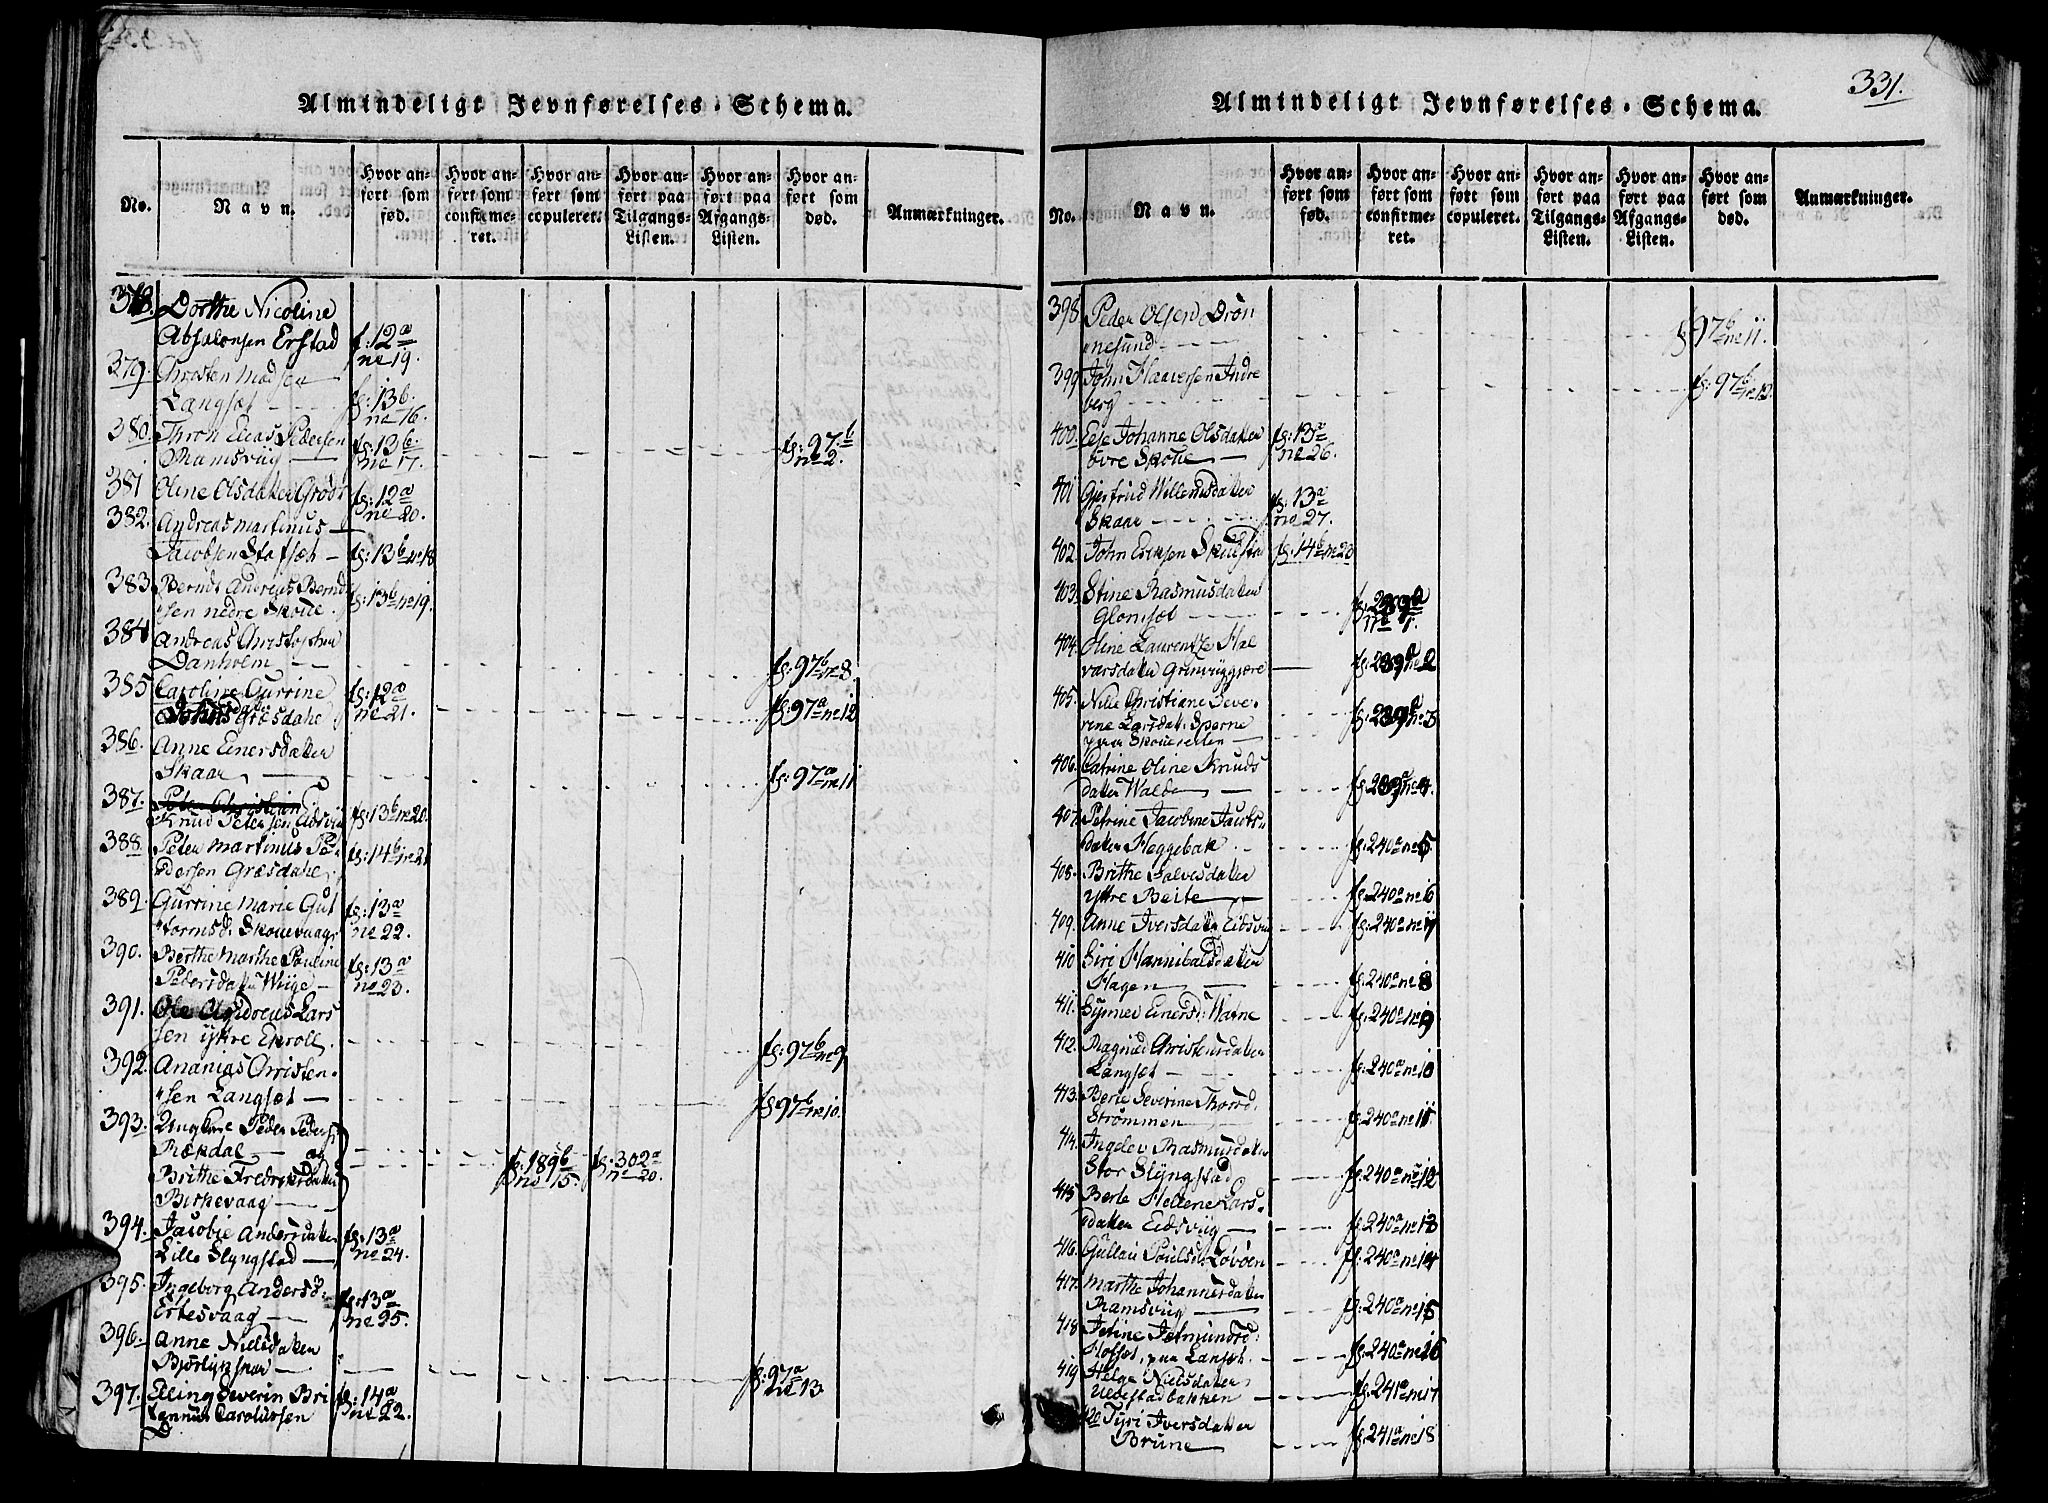 Almindeligt Jevnførelses-Schema.
No.
Navn.
Hvor an-
ført som
fød.
Hvor an-
ført som
confirme-
ret.
Hvor an-
ført som
copuleret.
Hvor an-
ført paa
Tilgangs-
Listen.
Hvor an-
ført paa
Afgangs-
Listen.
Hvor an-
ført som
død.
Anmærkninger.
378. Dorthe Nicoline
Absalonsen Erstad f: 12a
no 19.
379. Christen Madsen
Langset fg: 13b
no 16.
380. Thron Elias Pedersen fg: 13b fg: 97b
Ramsvüg no 17. no 2.
381 Oline Olsdatter fg: 12a
no 20.
382. Andreas Martinus
Jacobsen Stafset fg: 13b no 18
383. Bernt Andreas Bernt
sen nedre Skoue fg: 13b no 19.
384 Andreas Christophen
Danholm fg: 97b no 8.
385 Caroline Gurrine fg: 12a
Græsdahl no 21. fg: 97a no 12
386. Anne Einersdatter
Skaar fg: 97a no 11
387. Peter Christian
Knud Petersen Eidsvig fg: 13b no 20.
388. Peter Martinus Pe
dersen Græsdahl fg: 14b no 21
389. Gurrine Marie Gut fg: 13a
tormsd: Skouevaag no 22.
390. Berthe Marthe Pouline fg: 13a
Pedersdatter Wiige no 23.
391. Ole Andreas Lars
sen ÿttre Ekroll. fg: 97b no 9
392. Ananias Christen
sen Langset fg: 97b no 10.
393. Ungkarl Peder Peders:
Rekdal og fg: 189b fg: 302a
Brithe Fredriksdatter no 15. no 20.
Birkevaag
394. Jacobie Andersdatter fg: 13a
Lille Slyngstad no 24.
395. Ingeborg Andersd: fg: 13a
Ertesvaag no 25.
396. Anne Nielsdatter
Bjørlykhaar fg: 97a no 13
397. Elling Severin Bri fg: 14a
tannus Carolussen no 22.
331.
Almindeligt Jevnførelses-Schema.
No.
Navn.
Hvor an-
ført som
fød.
Hvor an-
ført som
confirme-
ret.
Hvor an-
ført som
copuleret.
Hvor an-
ført paa
Tilgangs-
Listen.
Hvor an-
ført paa
Afgangs-
Listen.
Hvor an-
ført som
død.
Anmærkninger.
398. Peder Olsen Drön
nesund fg 97b no 11.
399. John Haaversen Indre
berg fg: 97b no 12.
400. Else Johanne Olsdatter fg: 13a
övre Skoue no 26.
401 Gjertrud Willemsdatter fg: 13a
Skaar no 27.
402. John Eriksen fg: 14b no 23
403. Stine Rasmusdatter fg: 239a
Glomset no 1.
404. Oline Laurentze Hal
varsdatter fg: 239a no 2
405. Nille Christiane Seve- fg: 239a no 3
rine Larsdatt: Sperre
406. Catrine Oline Knuds
datter Walde fg: 239a no 4.
407. Petrine Jacobine Jacobs
datter Heggebak fg: 240a no 5
408. Brithe Salvesdatter
ÿttre Beite fg: 240a no 6
409. Anne Iversdatter Eidsvig fg: 240a no 7
410 Siri Hannibalsdatter
Hagen fg: 240a no 8
411. Synnev Einersd: Watne fg: 240a no 9
412. Ragnild Christensdatter
Langset fg: 240a no 10
413. Berte Severine Thoresd:
Strömmen fg: 240a no 11.
414. Ingelev Rasmusdatter
Stor Slyngstad fg: 240a no 12
415 Berte Hellene Lars
datter Eidsvig fg: 240a no 13
416. Gullau Poulsd: Lövöen fg: 240a no 14
417. Marthe Johannesdatter
Ramsvig fg: 240a no 15
418 Jetmundsd:
Hofset, paa Lanset fg: 240a no 16
419 Helge Nielsdatter
Uldestadbakken fg: 241a no 17
420 Tyri Iversdatter
Brune fg: 241a no 18